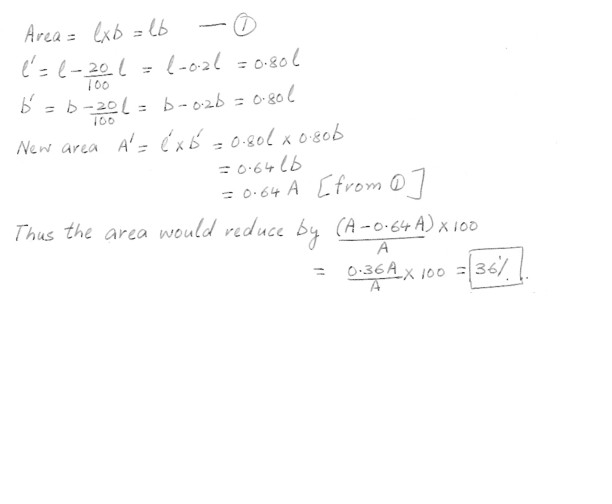 Area = l×b = lb — ①
l' = l - 20/100 l = l - 0.2l = 0.80l
b' = b - 20/100 l = b - 0.2b = 0.80l
New area A' = l' × b' = 0.80l × 0.80b
= 0.64 lb
= 0.64 A [from ①]
Thus the area would reduce by (A - 0.64A)/A × 100
= 0.36A/A × 100 = 36%.